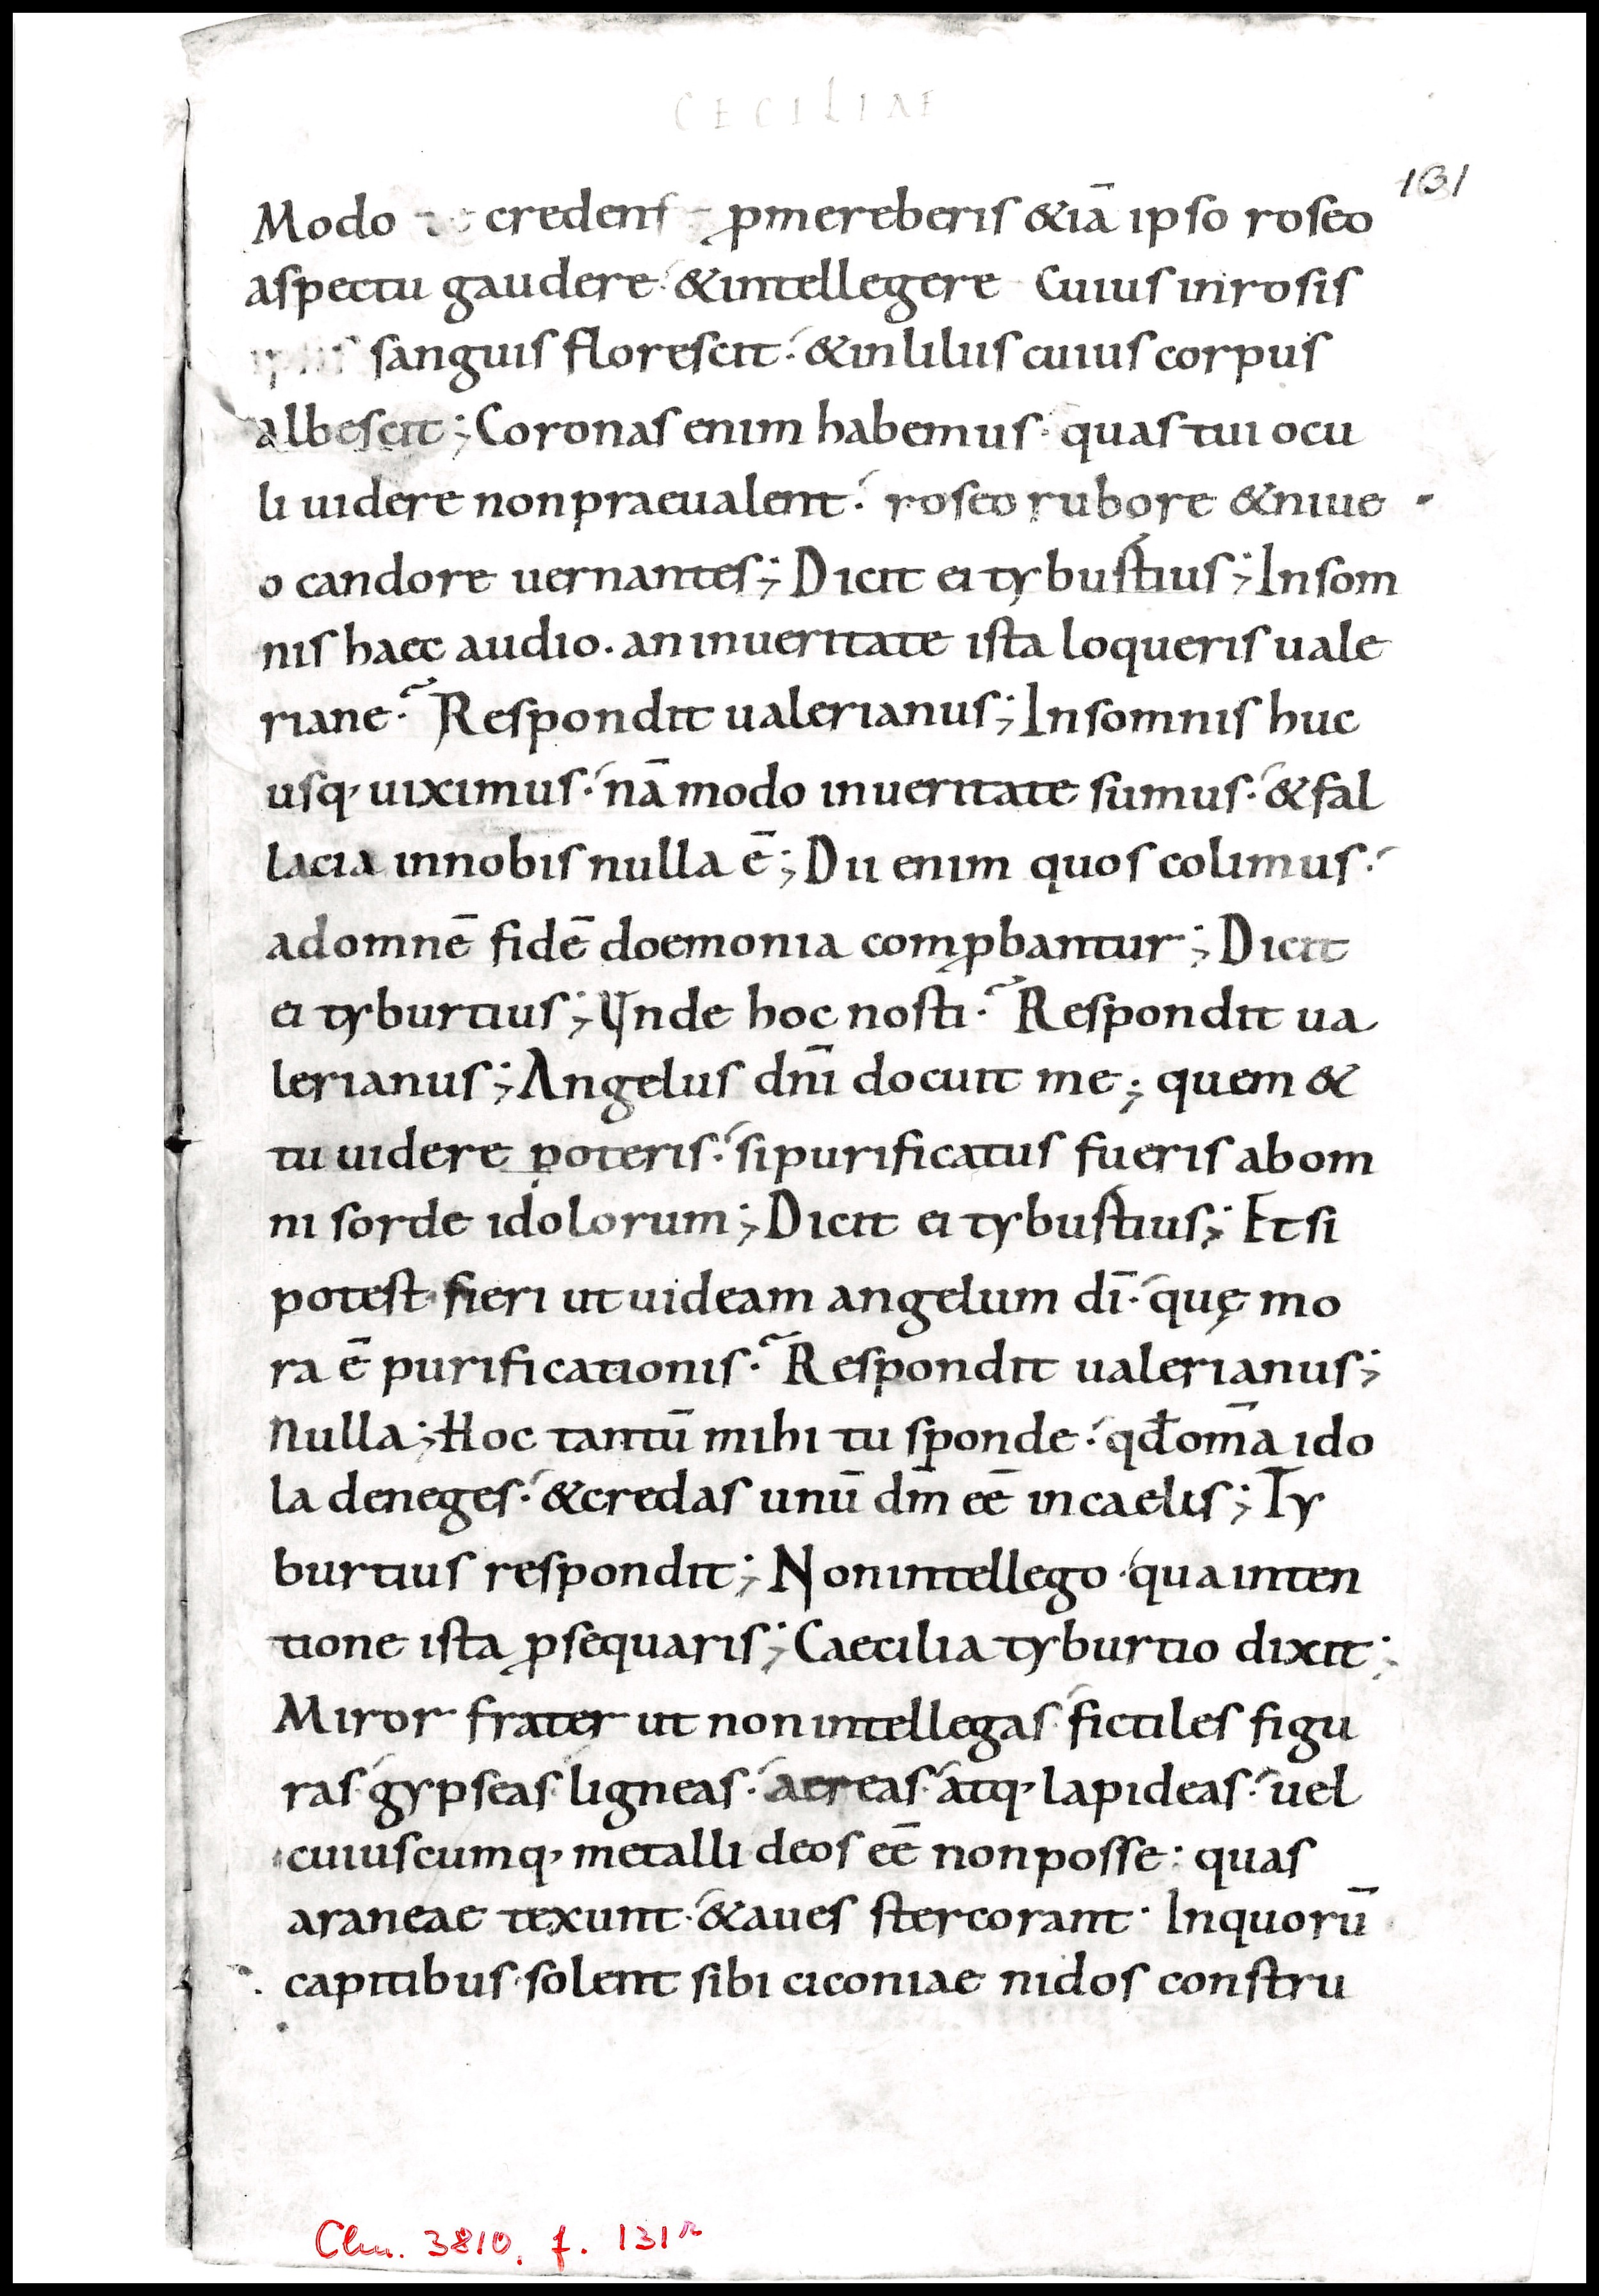 CECILIAE
131
Modo te credente ꝓmereberis &iā ipso roseo
aspectu gaudere &intellegere Cuius inrosis
ipsis sanguis florescit &inliliis cuius corpus
albescit; Coronas enim habemus quas tui ocu
li uidere nonpraeualent roseo rubore &niue
o candore uernantes; Dicit ei tyburtius; Insom
nis haec audio. an inueritate ista loqueris uale
riane? Respondit ualerianus; Insomnis huc
usq, uiximus nā modo inueritate sumus &fal
lacia innobis nulla ē; Dii enim quos colimus
adomnē fidē doemonia comꝓbantur; Dicit
ei tyburtius; Unde hoc nosti? Respondit ua
lerianus; Angelus dn̄i docuit me; quem &
tu uidere poteris sipurificatus fueris abom
ni sorde idolorum; Dicit ei tyburtius; Et si
potest fieri ut uideam angelum dī quę mo
ra ē purificationis? Respondit ualerianus;
Nulla; Hoc tantū mihi tu sponde qđ om̄a ido
la deneges &credas unū dm̄ eē incaelis; Ty
burtius respondit; Nonintellego quainten
tione ista ꝓsequaris; Caecilia tyburtio dixit;
Miror frater ut nonintellegas fictiles figu
ras gypseas ligneas aereas atq, lapideas uel
cuiuscumq, metalli deos eē nonposse: quas
araneae texunt &aues stercorant. Inquorū
capitibus solent sibi ciconiae nidos constru
Clm. 3810, f. 131r